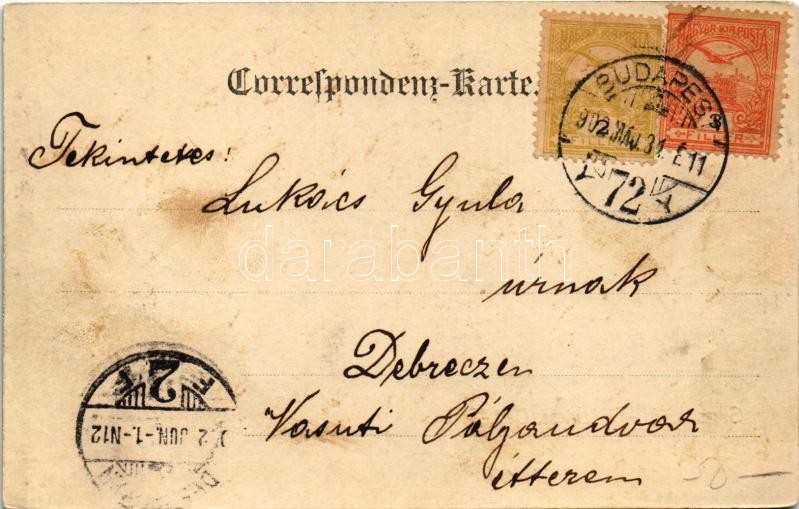 Correspondenz-Karte.
MAGYAR KIR. POSTA
MAGYAR KIR. POSTA
FILLÉR
FILLÉR
BUDAPEST
902 MÁJ. 31. E11
72
Tekintetes!
Lukács Gyula
darabanth
úrnak
Debreczen
Vasuti Pályaudvar
étterem
2 F
2 JUN.-1.-N12
50 —